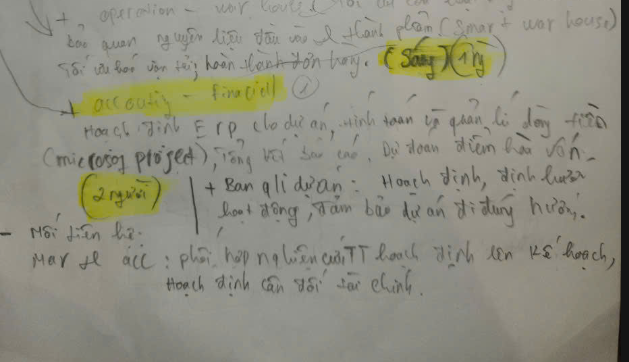 + operation - war house
bảo quan nguyên liệu đầu vào & thành phẩm (Smart war house)
Tối ưu hoá vận tải, hoàn thành đơn hàng. (Sáng) (1 ng)
+ accouting - Finaciel ①
Hoạch định Erp cho dự án, tính toán và quản lí dòng tiền
(microsoj project), Tổng kết báo cáo, Dự đoán điểm hòa vốn.
(2 người)
+ Ban qlí dự án : Hoạch định, định hướng
hoạt động, đảm bảo dự án đi đúng hướng.
- Mối liên hệ.
Mar & acc : phối hợp nghiên cứu TT hoạch định lên kế hoạch,
Hoạch định cân đối tài chính.